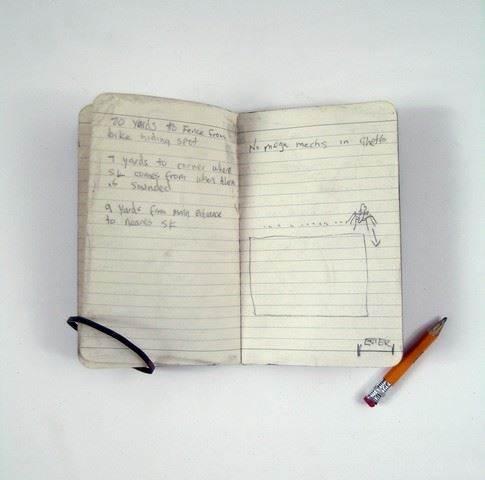 20 yards to Fence from
bike hiding spot
7 yards to corner where
SK comes from when
is sounded
9 yards from main entrance
to nearest SK
No mechs in Ghetto
ENTER